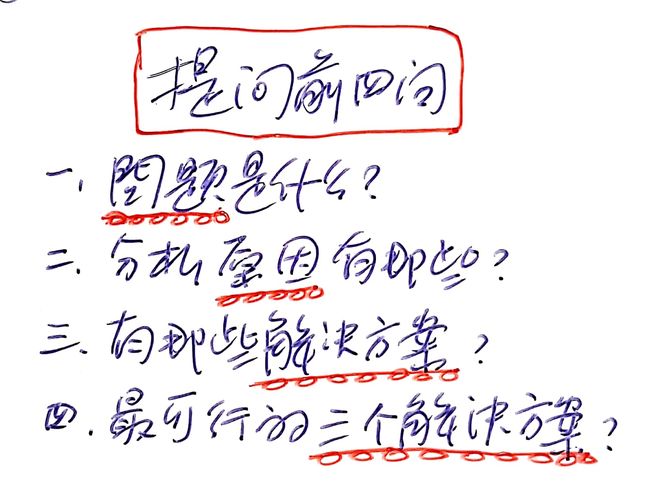 提问前四问
一、問题是什么?
二、分析原因有那些?
三、有那些解决方案?
四、最可行的三个解决方案?